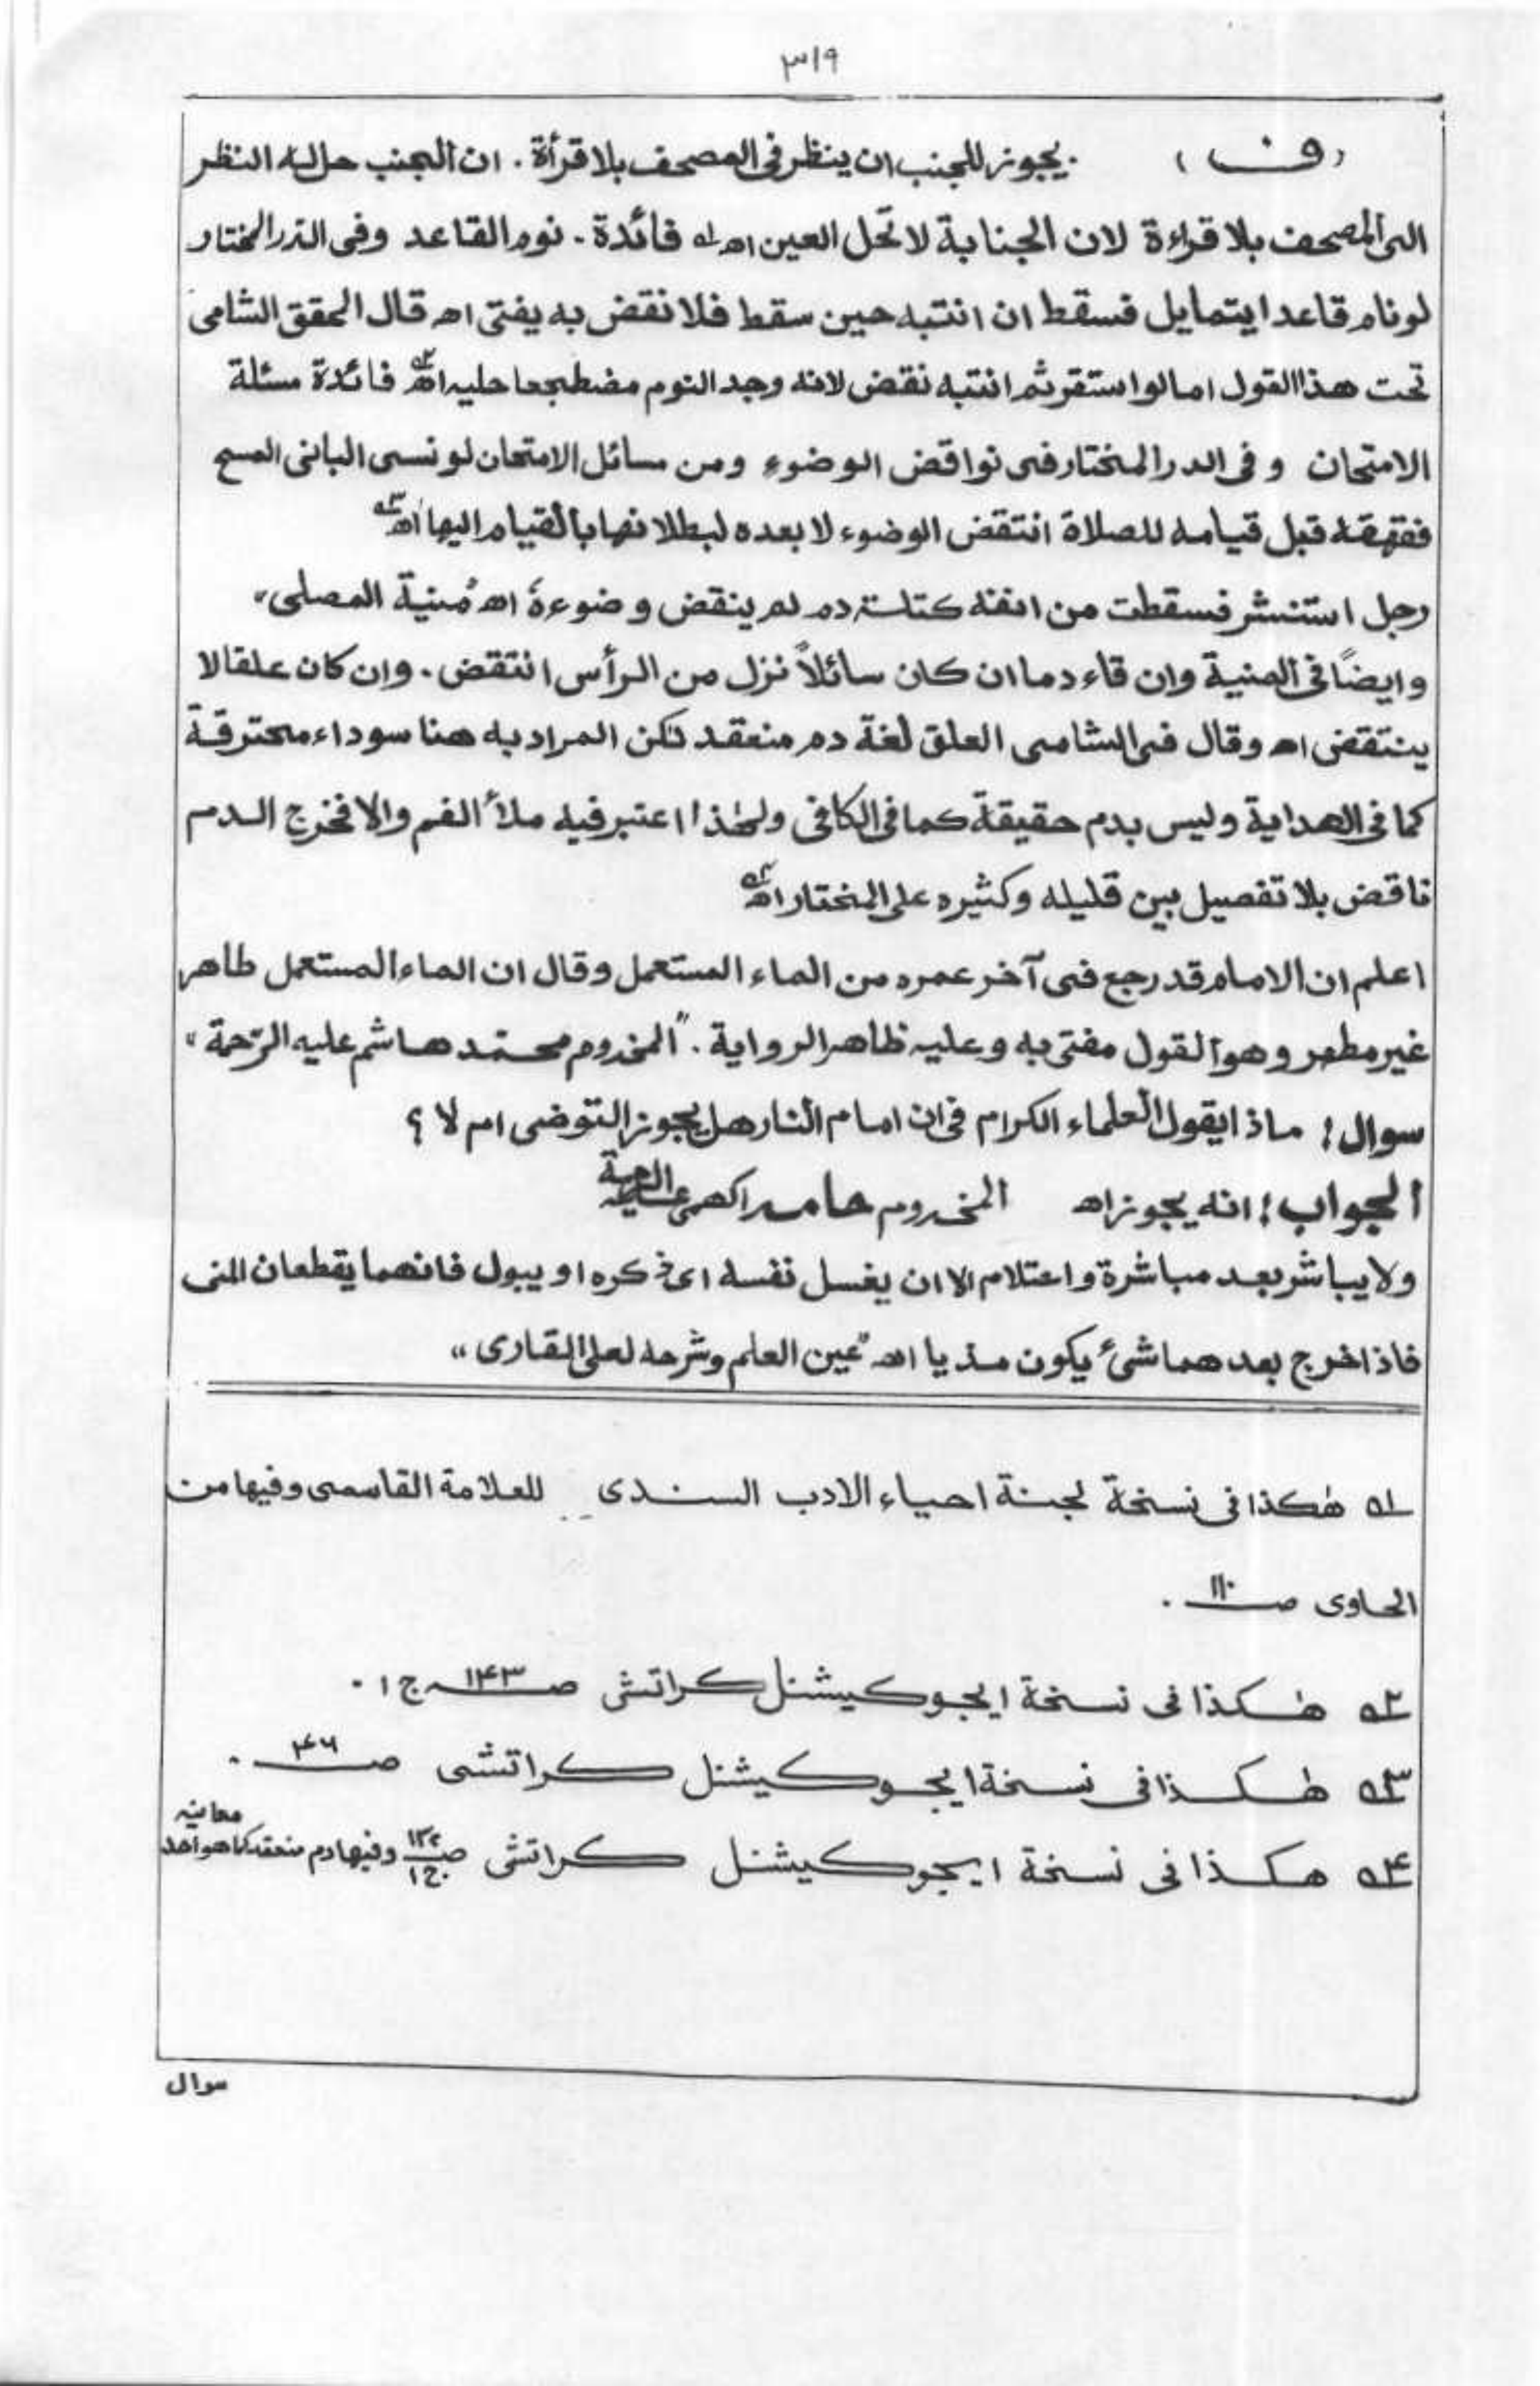 ۳۱۹
(ف) يجوز للجنب ان ينظر فى المصحف بلا قرأة . ان الجنب حل له النظر
الى المصحف بلا قراءة لان الجنابة لا تحل العين اھ ؎۱ فائدة . نوم القاعد وفى الدر المختار
لو نام قاعدا يتمايل فسقط ان انتبه حين سقط فلا نقض به يفتى اھ قال المحقق الشامى
تحت هذا القول اما لو استقر ثم انتبه نقض لانه وجد النوم مضطجعا حليه اھ ؎۲ فائدة مسئلة
الامتحان وفى الدر المختار فى نواقض الوضوء ومن مسائل الامتحان لو نسى البانى المسح
فقهقه قبل قيامه للصلاة انتقض الوضوء لا بعده لبطلانها بالقيام اليها اھ ؎۳
رجل استنثر فسقطت من انفه كتلة دم لم ينقض وضوءهٗ اھ "منية المصلى"
وايضًا فى المنية وان قاء دما ان كان سائلاً نزل من الرأس انتقض . وان كان علقا لا
ينتقض اھ وقال فى الشامى العلق لغة دم منعقد لكن المراد به هنا سوداء محترقة
كما فى الهداية وليس بدم حقيقة كما فى الكافى ولهٰذا اعتبر فيه ملأ الفم والا فخرج الدم
ناقض بلا تفصيل بين قليله وكثيره على المختار اھ ؎۴
اعلم ان الامام قد رجع فى آخر عمره من الماء المستعمل وقال ان الماء المستعمل طاهر
غير مطهر وهو القول مفتى به وعليه ظاهر الرواية . "المخدوم محمد هاشم عليه الرّحمة"
سوال! ماذا يقول العلماء الكرام فى ان امام النار هل يجوز التوضى ام لا ؟
الجواب! انه يجوز اھ المخدوم حامد اكهمى عليه الرحمة
ولا يباشر بعد مباشرة واحتلام الا ان يغسل نفسه اى ذكره او يبول فانهما يقطعان المنى
فاذا خرج بعدهما شىء يكون مذيا اھ "عين العلم وشرحه لعلى القارى"
؎۱ هٰكذا فى نسخة لجنة احياء الادب السندى للعلامة القاسمى وفيها من
الحاوى صـ ۱۱۰ .
؎۲ هٰكذا فى نسخة ايجوكيشنل كراتشى صـ ۱۴۳ ج ۱ .
؎۳ هٰكذا فى نسخة ايجوكيشنل كراتشى صـ ۴۶ .
؎۴ هكذا فى نسخة ايجوكيشنل كراتشى صـ ج ۱ وفيها دم منعقد كما هو احد معانيه
سوال